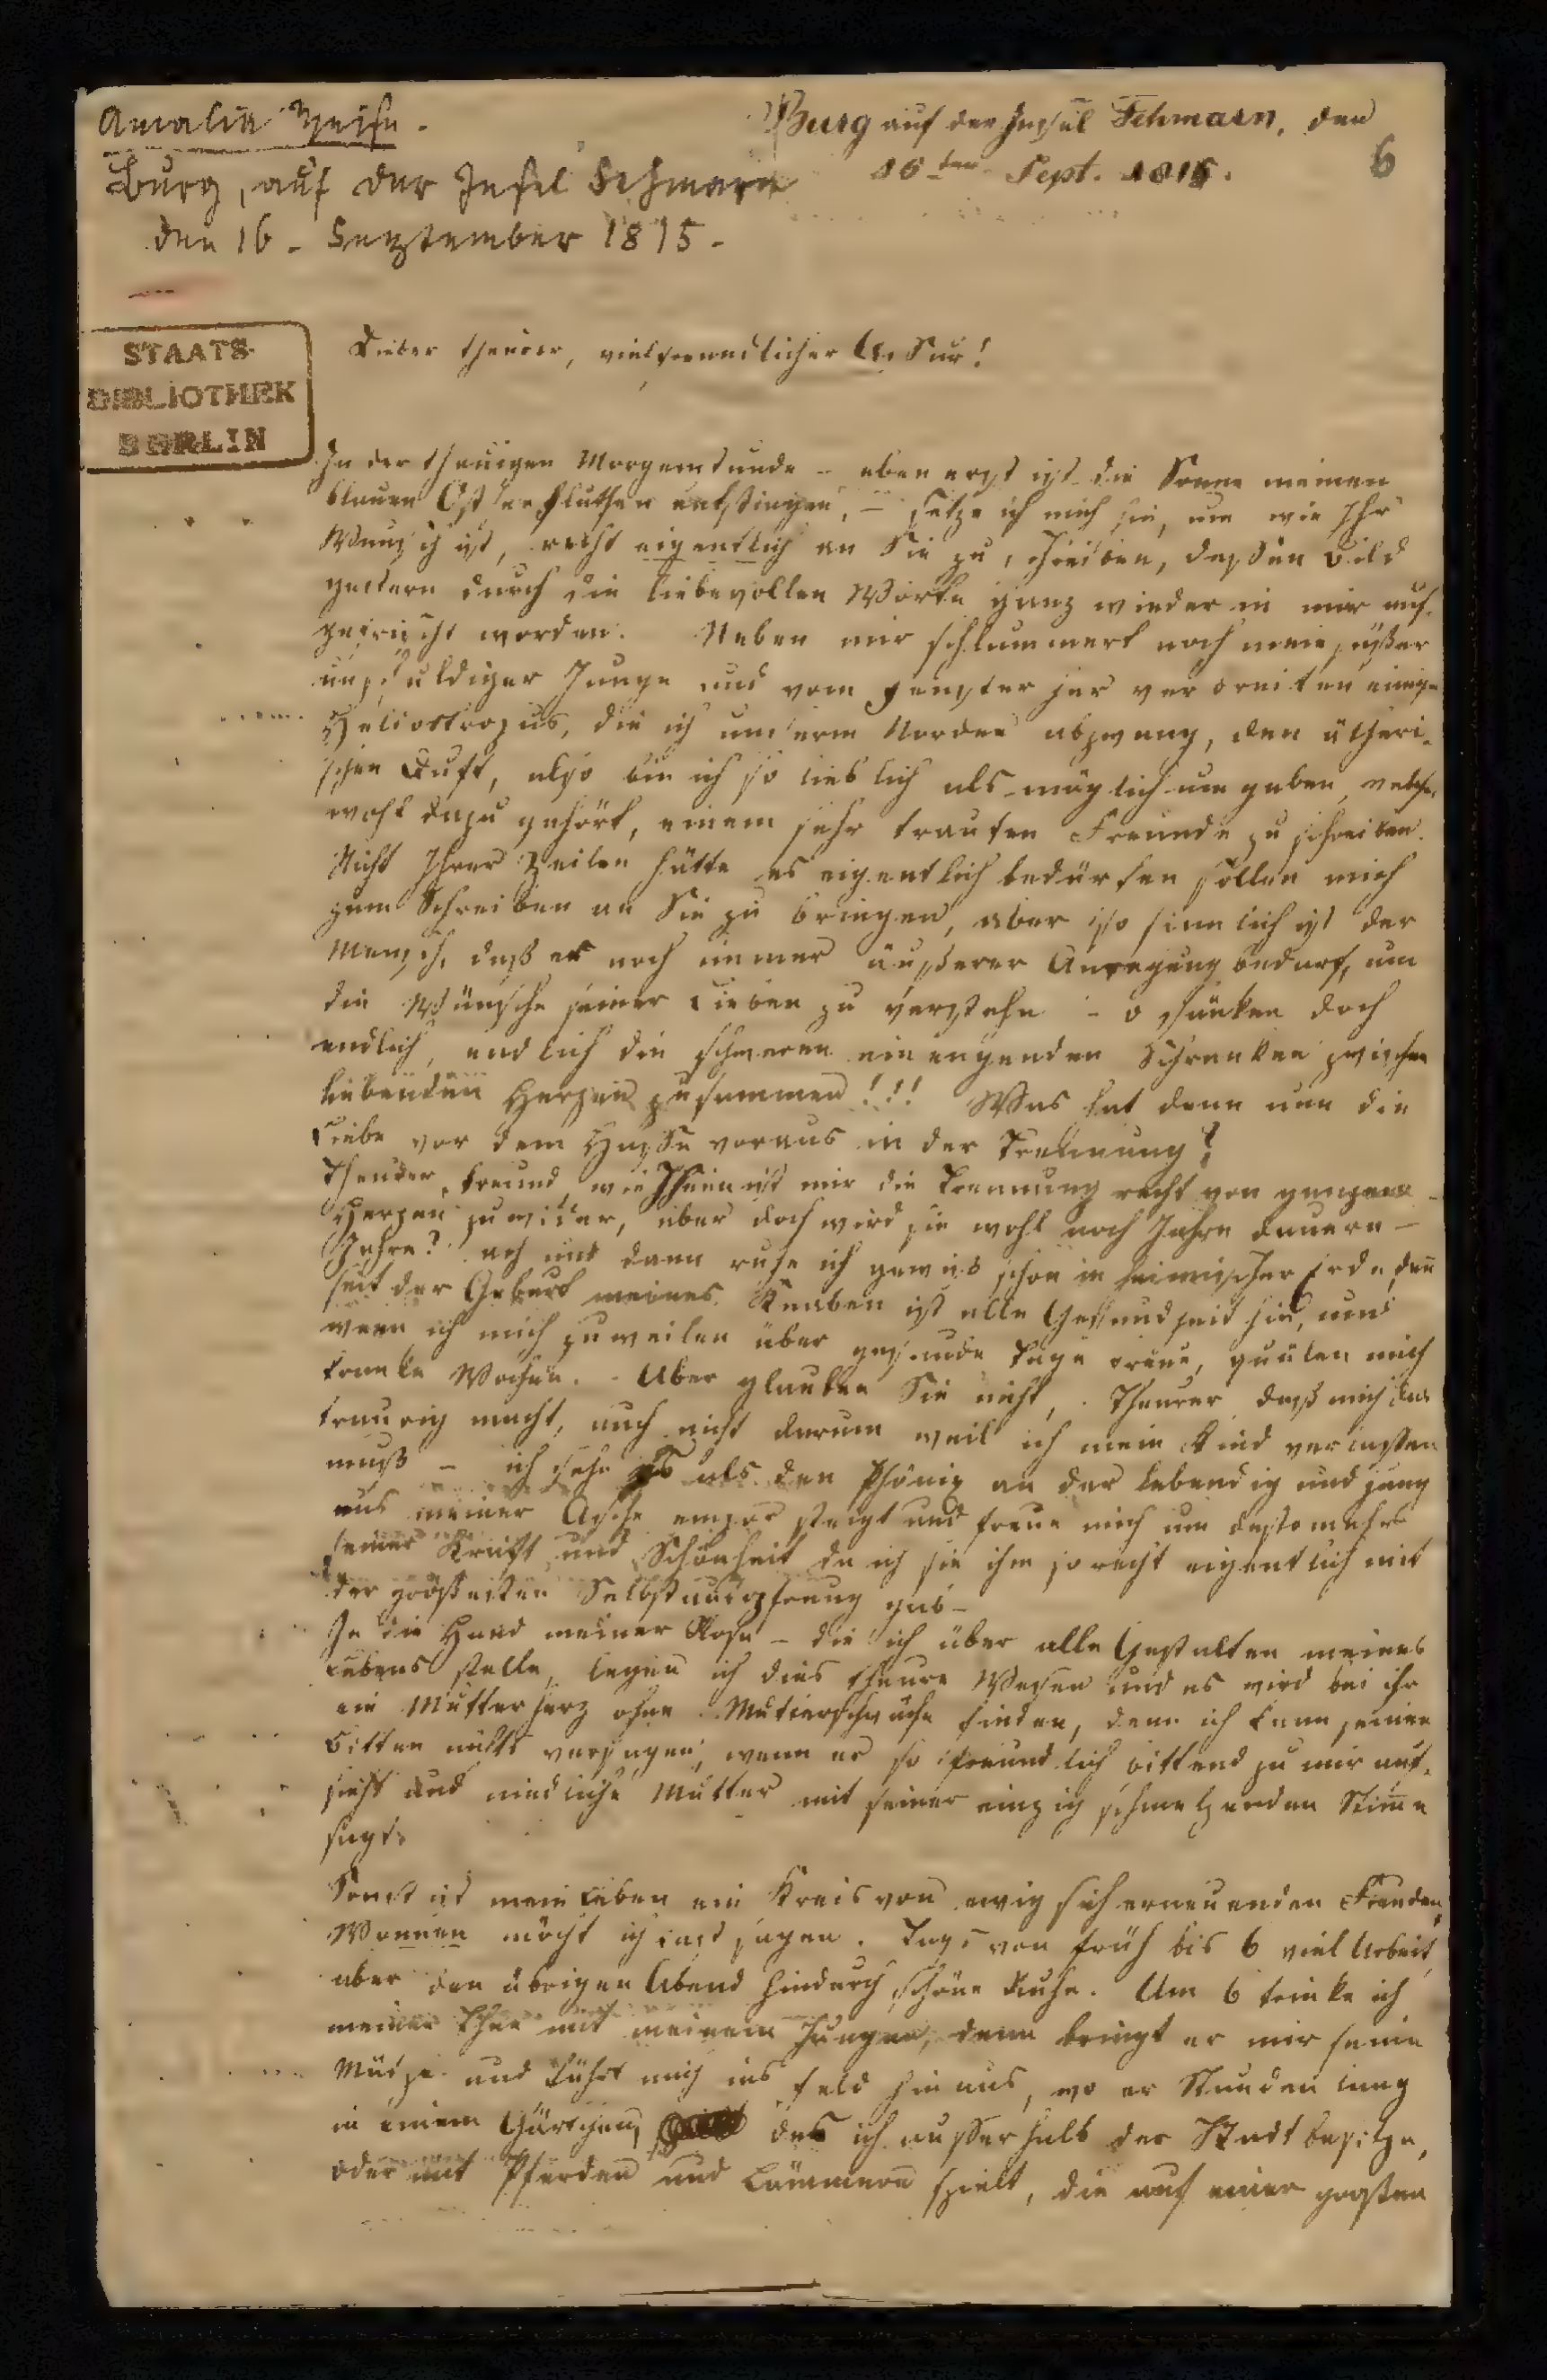 Amalia Weise.
Burg, auf der Insel Fehmarn
den 16. September 1815.
Burg auf der Insel Fehmarn, den
16ten Sept. 1815.
6
STAATS-
BIBLIOTHEK
BERLIN
Lieber theurer, vielfreundlicher
In der thauigen Morgenstunde – eben erst ist die Sonne meinen
blauen Ostseefluthen entstiegen, – setze ich mich hin, um wie Ihr
Wunsch ist, recht eigentlich an Sie zu schreiben, dessen Bild
gestern durch die liebevollen Worte ganz wieder in mir auf-
gefrischt worden. Neben mir schlummert noch mein süßer
unschuldiger Junge und vom Fenster her verbreiten einige
Heliostropus, die ich unserm Norden abzwang, den ätheri-
schen Duft, also bin ich so lieblich als möglich umgeben, welches
wohl dazu gehört, einem sehr trauten Freunde zu schreiben.
Nicht Ihrer Zeilen hätte es eigentlich bedürfen sollen mich
zum Schreiben an Sie zu bringen, aber so sinnlich ist der
Mensch, daß er noch immer äußerer Anregung bedarf, um
die Wünsche seiner Lieben zu verstehn – o sänken doch
endlich, endlich die schweren einengenden Schranken zwischen
liebenden Herzen zusammen!!! Was hat denn nun die
Liebe vor dem Hasse voraus in der Trennung?
Theurer Freund, wie Ihnen ist mir die Trennung recht von ganzem
Herzen zuwider, aber doch wird sie wohl noch Jahre dauern –
Jahre? ach und dann ruhe ich gewiß schon in heimischer Erde, denn
seit der Geburt meines Knaben ist alle Gesundheit hin, und
wenn ich mich zuweilen über gesunde Tage freue, quälen mich
kranke Wochen. – Aber glauben Sie nicht, Theurer, daß mich das
traurig macht, auch nicht darum weil ich mein Kind verlassen
muß – ich sehe es als den Phönix an der lebendig und jung
aus meiner Asche empor steigt und freue mich um destomehr
seiner Kraft und Schönheit da ich sie ihm so recht eigentlich mit
der größesten Selbstaufopfrung gab –
In die Hand meiner Rosa – die ich über alle Gestalten meines
Lebens stelle, legen ich dies theure Wesen und es wird bei ihr
ein Mutterherz ohne Mutterschwäche finden, denn ich kann seinen
Bitten nichts versagen, wenn er so freundlich bittend zu mir auf-
sieht und niedliche Mutter mit seiner einzig schmelzenden Stimme
sagt.
Sonst ist mein Leben ein Kreis von ewig sich erneuenden Freuden,
Wonnen möcht ich fast sagen. Tags von früh bis 6 viel Arbeit,
aber den übrigen Abend hindurch schöne Ruhe. Um 6 trinke ich
meinen Thee mit meinem Jungen, dann bringt er mir seine
Mütze und führt mich ins Feld hinaus, wo er Stunden lang
in einem Gärtchen, das ich außerhalb der Stadt besitze,
oder mit Pferden und Lämmern spielt, die auf einer großen